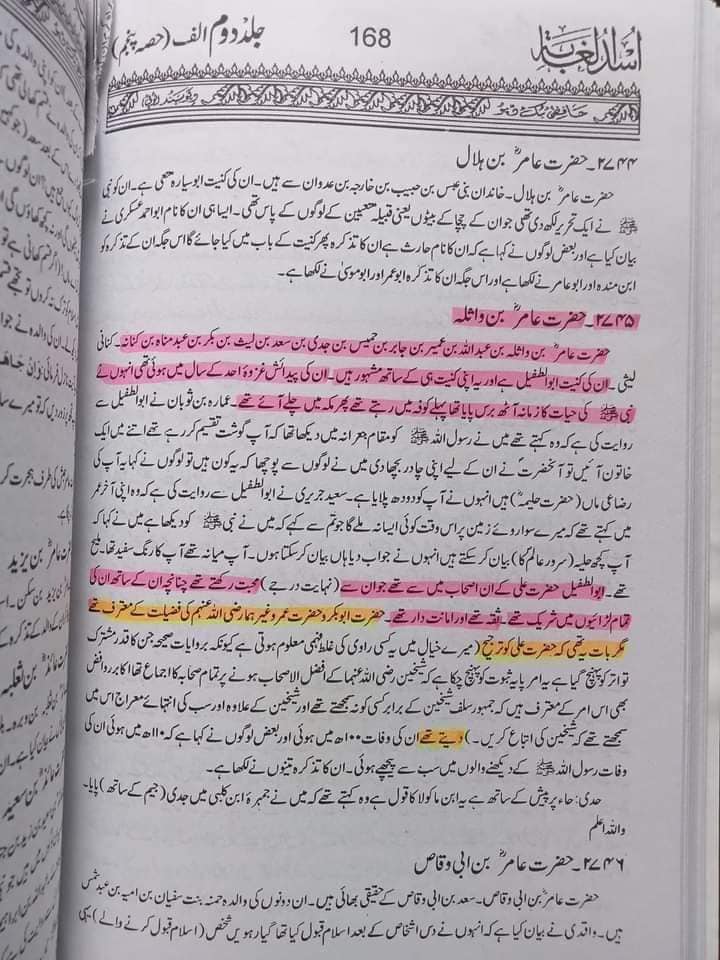 اسد الغابۃ 168 جلد دوم الف (حصہ پنجم)
حافظی بک ڈپو دیوبند
۲۷۴۴۔ حضرت عامرؓ بن ہلال
حضرت عامرؓ بن ہلال۔ خاندان بنی عبس بن حبیب بن خارجہ بن عدوان سے ہیں۔ ان کی کنیت ابوسیارہ متعی ہے۔ ان کو نبی
ﷺ نے ایک تحریر لکھ دی تھی جو ان کے چچا کے بیٹوں یعنی قبیلہ متعیین کے لوگوں کے پاس تھی۔ ایسا ہی ان کا نام ابواحمد عسکری نے
بیان کیا ہے اور بعض لوگوں نے کہا ہے کہ ان کا نام حارث ہے ان کا تذکرہ پھر کنیت کے باب میں کیا جائے گا اس جگہ ان کے تذکرہ کو
ابن مندہ اور ابوعامر نے لکھا ہے اور اس جگہ ان کا تذکرہ ابوعمر اور ابوموسیٰ نے لکھا ہے۔
۲۷۴۵۔ حضرت عامرؓ بن واثلہ
حضرت عامرؓ بن واثلہ بن عبداللہ بن عمیر بن جابر بن حمیس بن جدی بن سعد بن لیث بن بکر بن عبد مناہ بن کنانہ۔ کنانی
لیثی۔ ان کی کنیت ابوالطفیل ہے اور یہ اپنی کنیت ہی کے ساتھ مشہور ہیں۔ ان کی پیدائش غزوۂ احد کے سال میں ہوئی تھی انہوں نے
نبی ﷺ کی حیات کا زمانہ آٹھ برس پایا تھا پہلے کوفہ میں رہتے تھے پھر مکہ میں چلے آئے تھے۔ عمارہ بن ثوبان نے ابوالطفیل سے
روایت کی ہے کہ وہ کہتے تھے میں نے رسول اللہ ﷺ کو مقام جعرانہ میں دیکھا تھا کہ آپ گوشت تقسیم کر رہے تھے اتنے میں ایک
خاتون آئیں تو آنحضرتؐ نے ان کے لیے اپنی چادر بچھا دی میں نے لوگوں سے پوچھا کہ یہ کون ہیں تو لوگوں نے کہا یہ آپ کی
رضاعی ماں (حضرت حلیمہؓ) ہیں انہوں نے آپ کو دودھ پلایا ہے۔ سعید جریری نے ابوالطفیل سے روایت کی ہے کہ وہ اپنی آخر عمر
میں کہتے تھے کہ میرے سوا روئے زمین پر اس وقت کوئی ایسا نہ ملے گا جو تم سے کہے کہ میں نے نبی ﷺ کو دیکھا ہے میں نے کہا کہ
آپ کچھ حلیہ (سرور عالمؐ کا) بیان کر سکتے ہیں انہوں نے جواب دیا ہاں بیان کر سکتا ہوں۔ آپ میانہ تھے آپ کا رنگ سفید تھا۔ ملیح
تھے۔ ابوالطفیل حضرت علی کے ان اصحاب میں سے تھے جو ان سے (نہایت درجے) محبت رکھتے تھے چنانچہ ان کے ساتھ ان کی
تمام لڑائیوں میں شریک تھے۔ ثقہ تھے اور امانت دار تھے۔ حضرت ابوبکر و حضرت عمر وغیرہما رضی اللہ عنہم کی فضیلت کے معترف تھے
مگر بات یہ تھی کہ حضرت علی کو ترجیح (میرے خیال میں یہ کسی راوی کی غلط فہمی معلوم ہوتی ہے کیونکہ بروایات صحیحہ جن کا قدر مشترک
تواتر کو پہنچ گیا ہے یہ امر پایہ ثبوت کو پہنچ چکا ہے کہ شیخین رضی اللہ عنہما کے افضل الاصحاب ہونے پر تمام صحابہ کا اجماع تھا اکابر روافض
بھی اس امر کے معترف ہیں کہ جمہور سلف شیخین کے برابر کسی کو نہ سمجھتے تھے اور شیخین کے علاوہ اور سب کی انتہائے معراج اس میں
سمجھتے تھے کہ شیخین کی اتباع کریں۔) دیتے تھے ان کی وفات ۱۰۰ھ میں ہوئی اور بعض لوگوں نے کہا ہے کہ ۱۱۰ھ میں ہوئی ان کی
وفات رسول اللہ ﷺ کے دیکھنے والوں میں سب سے پیچھے ہوئی۔ ان کا تذکرہ تینوں نے لکھا ہے۔
حدی: حاء پر پیش کے ساتھ ہے یہ ابن ماکولا کا قول ہے وہ کہتے تھے کہ میں نے جمہرۃ ابن کلبی میں جدی (جیم کے ساتھ) پایا۔
واللہ اعلم
۲۷۴۶۔ حضرت عامرؓ بن ابی وقاص
حضرت عامرؓ بن ابی وقاص۔ سعد بن ابی وقاص کے حقیقی بھائی ہیں۔ ان دونوں کی والدہ حمنہ بنت سفیان بن امیہ بن عبد شمس
ہیں۔ واقدی نے بیان کیا ہے کہ انہوں نے دس اشخاص کے بعد اسلام قبول کیا تھا گیارہویں شخص (اسلام قبول کرنے والے) یہی